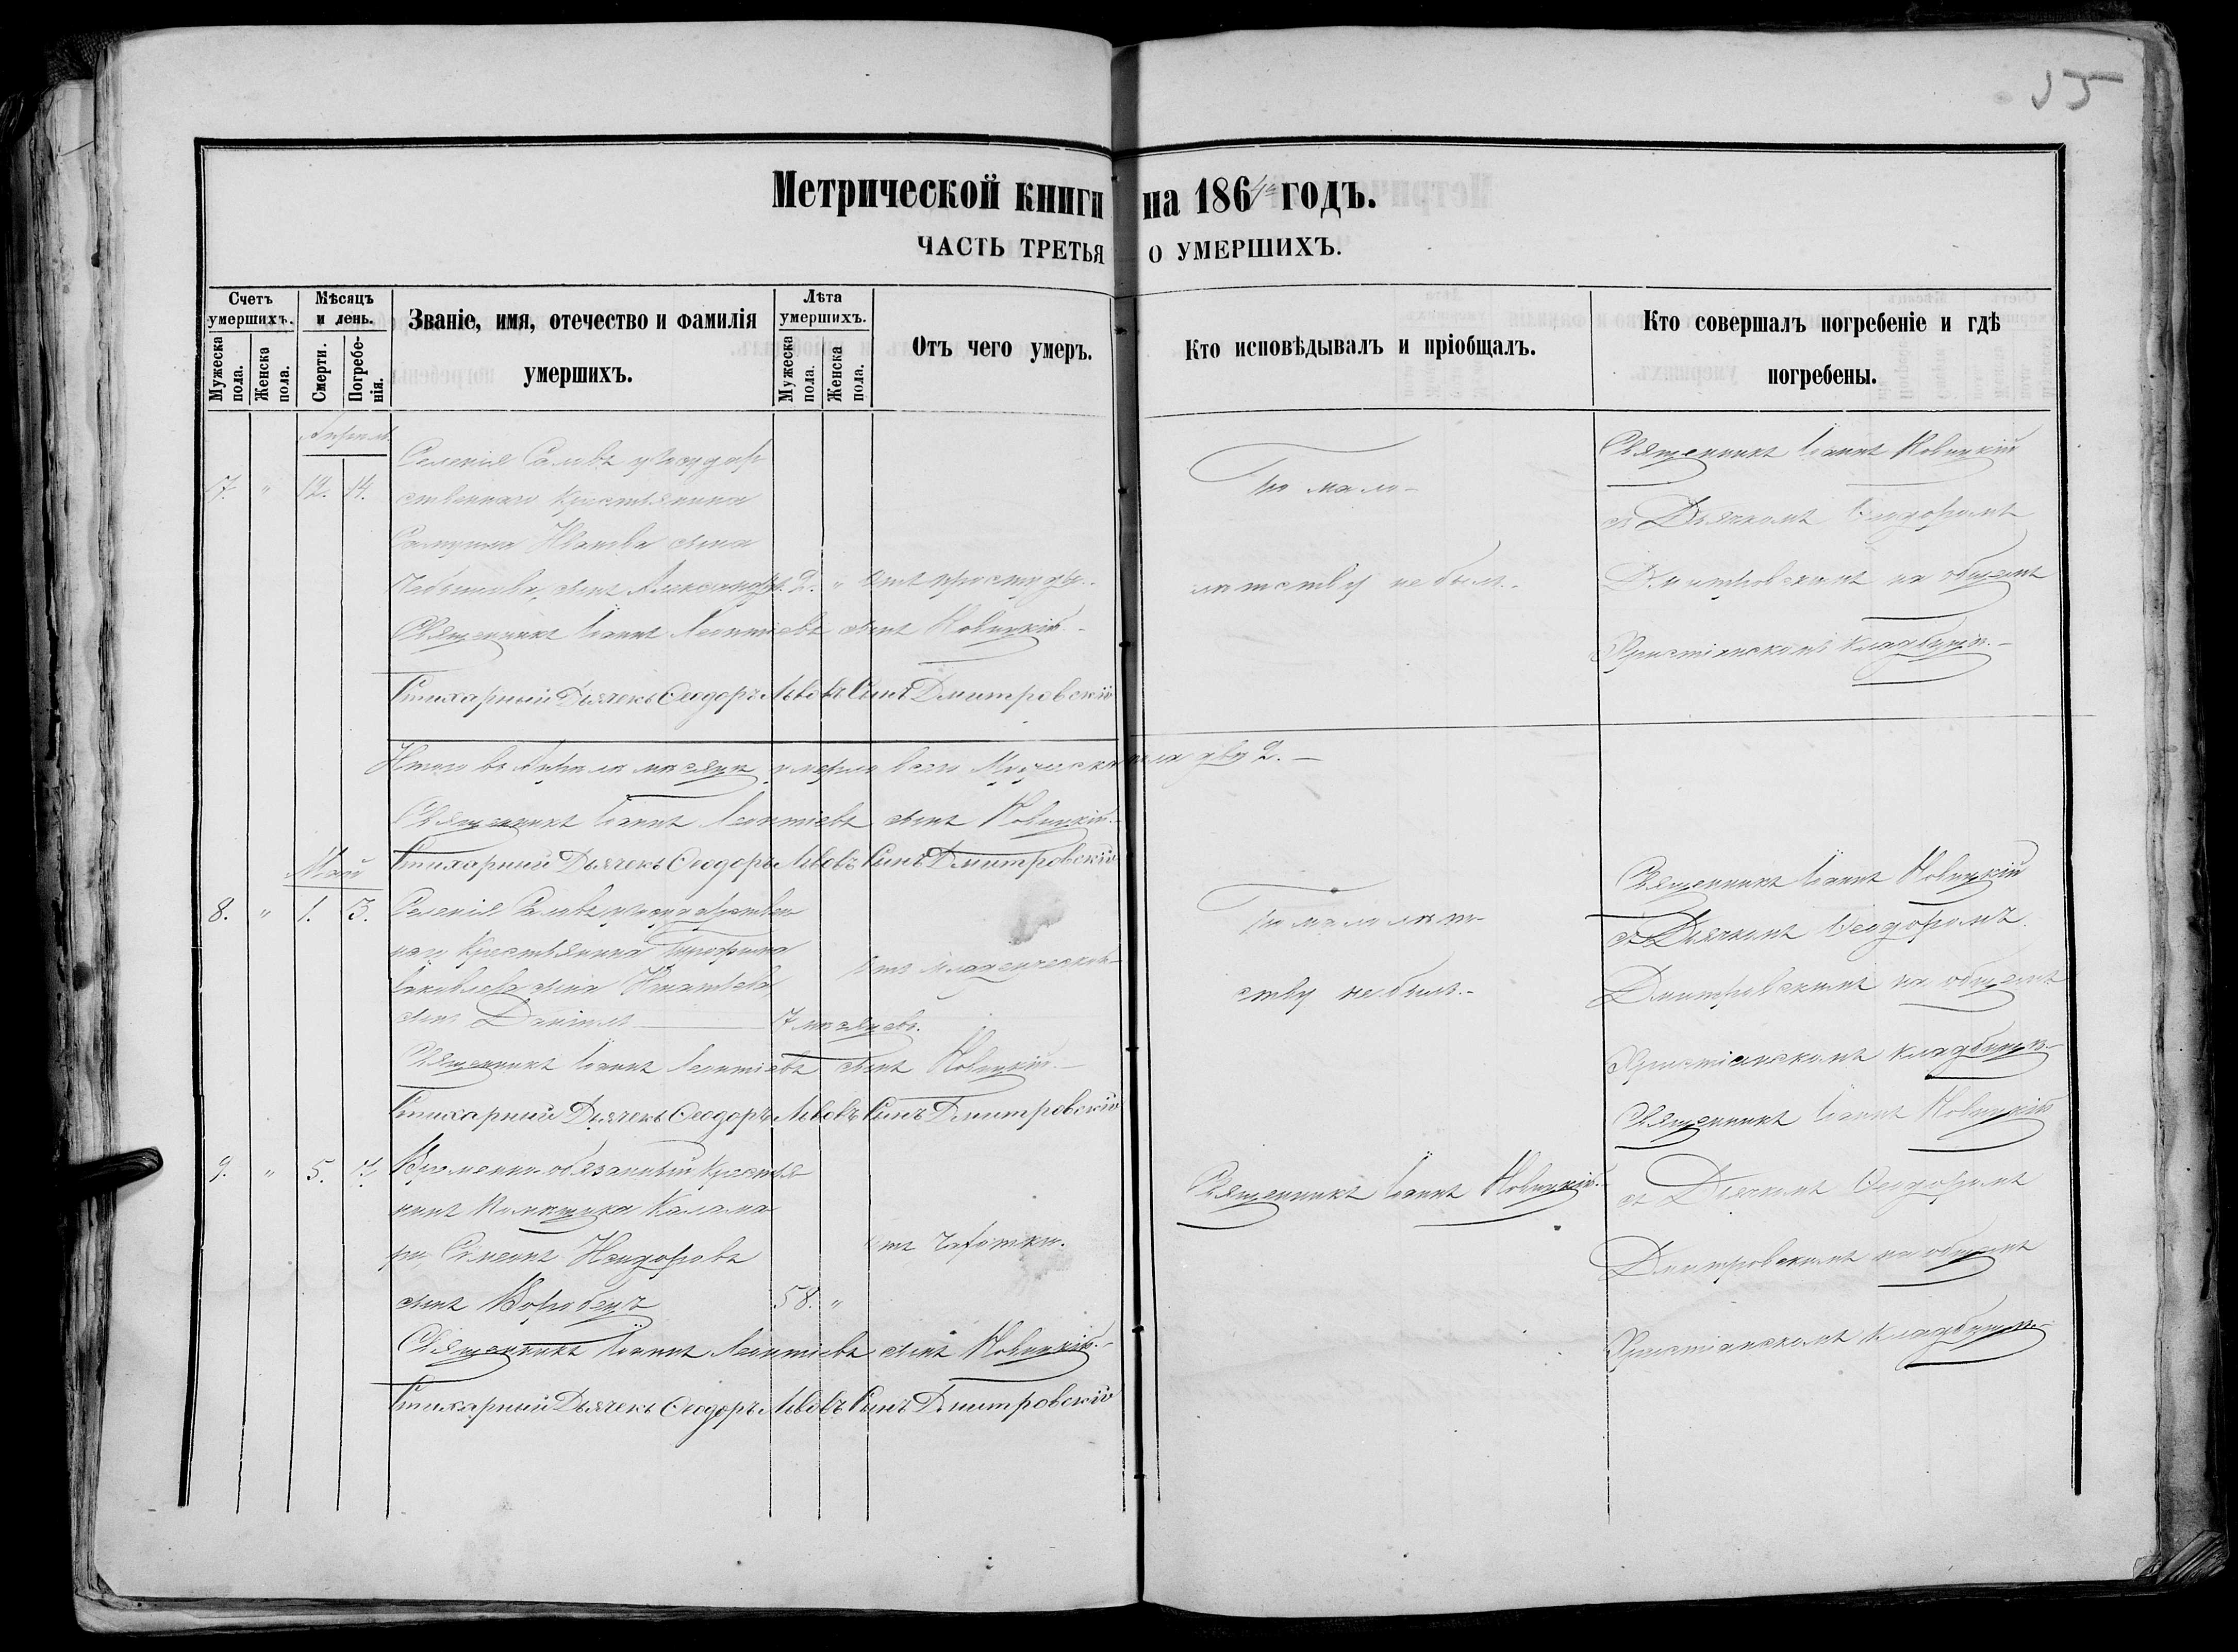 Метрической книги на 1864й годъ.
ЧАСТЬ ТРЕТЬЯ О УМЕРШИХЪ.
Счетъ умершихъ.
Мужеска пола.
Женска пола.
Мѣсяцъ и день.
Смерти.
Погребенія.
Званіе, имя, отечество и фамилія
умершихъ.
Лѣта умершихъ.
Мужеска пола.
Женска пола.
Отъ чего умеръ.
Кто исповѣдывалъ и пріобщалъ.
Кто совершалъ погребеніе и гдѣ
погребены.
Апрель
7. " 12. 14.
Селенія государ
ственнаго крестьянина
Иванова сына
сынъ Александръ. 2. " Отъ простуды.
Священникъ Іоаннъ Леонтіевъ сынъ Новицкій.
Стихарный Дьячекъ Ѳеодоръ Львовъ Сынъ Дмитровскій
По мало-
лѣтству не былъ.
Священникъ Іоаннъ Новицкій
съ Дьячкомъ Ѳеодоромъ
Дмитровскимъ на общемъ
Христіанскомъ кладбищѣ.
Итого въ Апрѣлѣ мѣсяцѣ умерло всего Мужеска пола два 2.
Священникъ Іоаннъ Леонтіевъ сынъ Новицкій.
Стихарный Дьячекъ Ѳеодоръ Львовъ Сынъ Дмитровскій
Май
8. " 1. 3.
Селенія государствен
наго крестьянина Трофима
Іаковлева сына Игнатьева,
сынъ Даніилъ 7 мѣсяцевъ.
Отъ младенческой
Священникъ Іоаннъ Леонтіевъ сынъ Новицкій.
Стихарный Дьячекъ Ѳеодоръ Львовъ Сынъ Дмитровскій
По малолѣт-
ству не былъ.
Священникъ Іоаннъ Новицкій
съ Дьячкомъ Ѳеодоромъ
Дмитровскимъ на общемъ
Христіанскомъ кладбищѣ.
9. " 5. 7.
Временно-обязанный крестья
нинъ Помѣщика Калама
ры, Сѵмеонъ
сынъ 58. "
отъ чахотки.
Священникъ Іоаннъ Леонтіевъ сынъ Новицкій.
Стихарный Дьячекъ Ѳеодоръ Львовъ Сынъ Дмитровскій
Священникъ Іоаннъ Новицкій.
Священникъ Іоаннъ Новицкій
съ Дьячкомъ Ѳеодоромъ
Дмитровскимъ на общемъ
Христіанскомъ кладбищѣ.